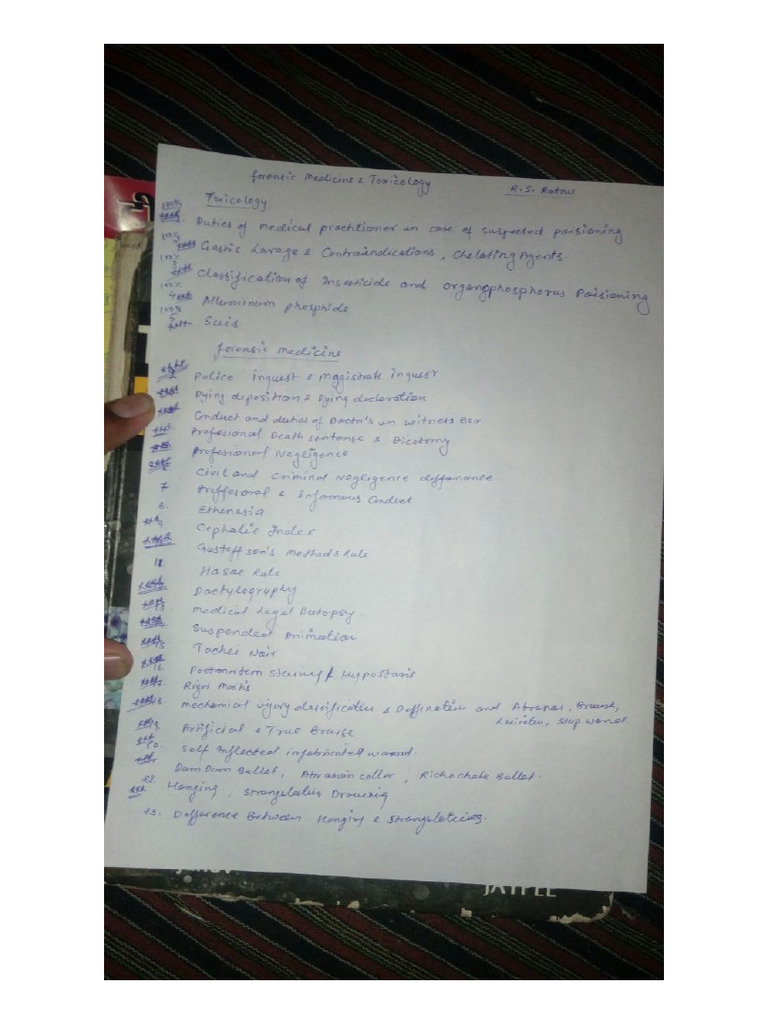 Forensic Medicine & Toxicology
R.S. Ratnu
Toxicology
100%
Duties of medical practitioner in case of suspected poisioning
100%
Gastic Lavage & Contraindications, Chelating Agents
100%
Classification of Insecticide and organophosphorus Poisioning
100%
4 *** Alluminum phosphide
100%
5
Forensic Medicine
Police inquest & Magistrate inquest
Dying deposition & Dying declaration
Conduct and duties of Doctor's in witness Box
Profesional Death sentense & Dicotomy
Profesional Negligence
Civil and Criminal Negligence
7 & Infamous Conduct
8. Ethenasia
9. Cephalic Index
Gustaffson's Methods Rule
11. Hasae Rule
Dactylography
13. Medical Legal Autopsy
Suspended Animation
15 Tachei Noir
16. Postmortem & Hypostasis
17. Rigor Mortis
18 Mechanical injury classification & Deffinetion and Abrasion, Bruise,
wound
19. Artificial & True Bruise
20. Self Inflected wound
Dum Dum Bullet, Abrasion collar, Richochate Bullet.
22. Hanging, Strangulation Drowning
23. Difference Between Hanging & Strangulations.
JAYPEE